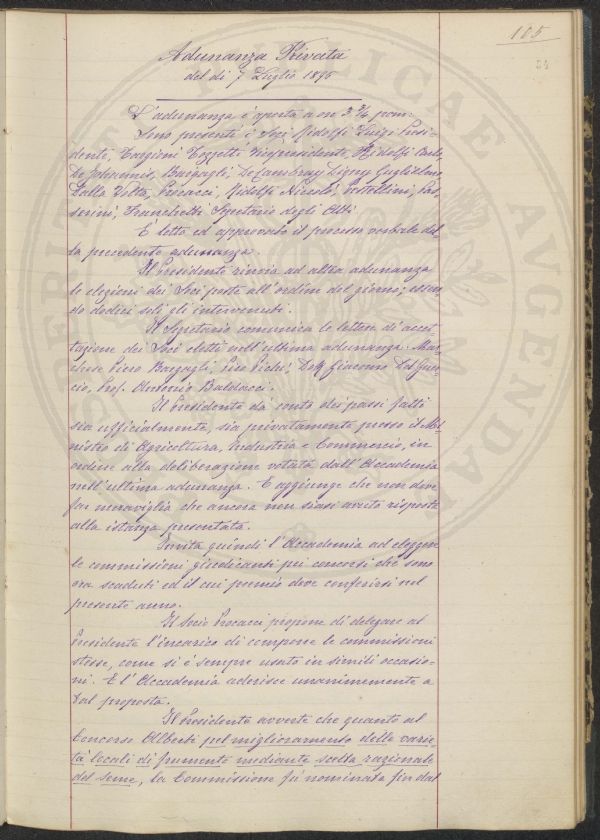 105
Adunanza Privata
del dì 7 Luglio 1895
L'adunanza è aperta a ore 3 3/4 pom.
Sono presenti i Soci Ridolfi Luigi Presi-
dente, Targioni Tozzetti Vicepresidente, Ridolfi Carlo,
De Johannis, Bargagli, De Cambray Digny Guglielmo,
Dalla Volta, Procacci, Ridolfi Niccolò, Pas-
serini, Franchetti Segretario degli Atti
È letto ed approvato il processo verbale del-
la precedente adunanza.
Il Presidente rinvia ad altra adunanza
le elezioni dei Soci poste all'ordine del giorno; essen-
do dodici soli gli intervenuti.
Il Segretario comunica le lettere di accet-
tazione dei Soci eletti nell'ultima adunanza: Mar-
chese Piero Bargagli; Pico Pichi; Dott. Giacomo Del
cio, Prof. Antonio Baldacci.
Il Presidente dà conto dei passi fatti
sia ufficialmente, sia privatamente presso il Mi-
nistro di Agricoltura, Industria e Commercio, in
ordine alla deliberazione votata dall'Accademia
nell'ultima adunanza. E aggiunge che non deve
far meraviglia che ancora non siasi avuta risposta
alla istanza presentata.
Invita quindi l'Accademia ad eleggere
le commissioni giudicanti pei concorsi che sono
ora scaduti ed il cui premio deve conferirsi nel
presente anno.
Il Socio Procacci propone di delegare al
Presidente l'incarico di comporre le commissioni
stesse, come si è sempre usato in simili occasio-
ni. E l'Accademia aderisce unanimemente a
tal proposta.
Il Presidente avverte che quanto al
Concorso Alberti pel miglioramento delle varie-
tà locali di frumento mediante scelta razionale
del seme, la Commissione fu nominata fin dal